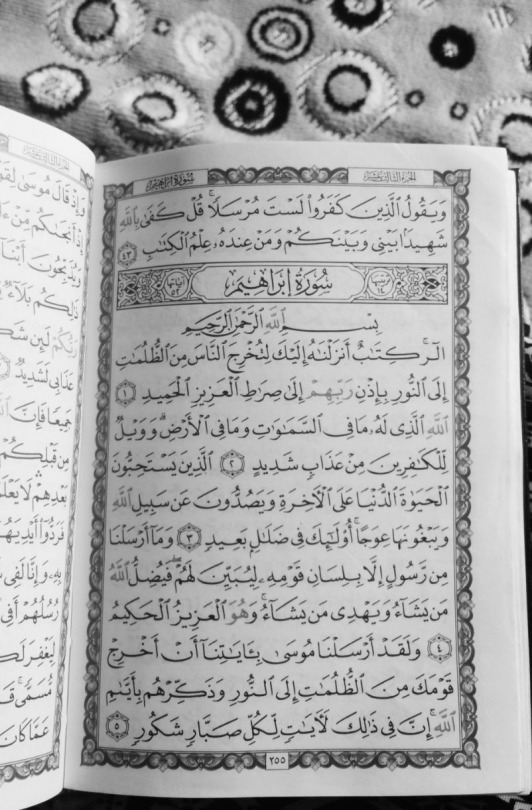 سُورَةُ إِبْرَاهِيم
الجُزءُ الثَّالِثَ عَشَر
وَيَقُولُ ٱلَّذِينَ كَفَرُوا۟ لَسْتَ مُرْسَلًا ۚ قُلْ كَفَىٰ بِٱللَّهِ
شَهِيدًۢا بَيْنِى وَبَيْنَكُمْ وَمَنْ عِندَهُۥ عِلْمُ ٱلْكِتَٰبِ ٤٣
سُورَةُ إِبْرَاهِيم
بِسْمِ ٱللَّهِ ٱلرَّحْمَٰنِ ٱلرَّحِيمِ
الٓر ۚ كِتَٰبٌ أَنزَلْنَٰهُ إِلَيْكَ لِتُخْرِجَ ٱلنَّاسَ مِنَ ٱلظُّلُمَٰتِ
إِلَى ٱلنُّورِ بِإِذْنِ رَبِّهِمْ إِلَىٰ صِرَٰطِ ٱلْعَزِيزِ ٱلْحَمِيدِ ١
ٱللَّهِ ٱلَّذِى لَهُۥ مَا فِى ٱلسَّمَٰوَٰتِ وَمَا فِى ٱلْأَرْضِ ۗ وَوَيْلٌ
لِّلْكَٰفِرِينَ مِنْ عَذَابٍ شَدِيدٍ ٢ ٱلَّذِينَ يَسْتَحِبُّونَ
ٱلْحَيَوٰةَ ٱلدُّنْيَا عَلَى ٱلْءَاخِرَةِ وَيَصُدُّونَ عَن سَبِيلِ ٱللَّهِ
وَيَبْغُونَهَا عِوَجًا ۚ أُو۟لَٰٓئِكَ فِى ضَلَٰلٍۭ بَعِيدٍ ٣ وَمَآ أَرْسَلْنَا
مِن رَّسُولٍ إِلَّا بِلِسَانِ قَوْمِهِۦ لِيُبَيِّنَ لَهُمْ ۖ فَيُضِلُّ ٱللَّهُ
مَن يَشَآءُ وَيَهْدِى مَن يَشَآءُ ۚ وَهُوَ ٱلْعَزِيزُ ٱلْحَكِيمُ
٤ وَلَقَدْ أَرْسَلْنَا مُوسَىٰ بِـَٔايَٰتِنَآ أَنْ أَخْرِجْ
قَوْمَكَ مِنَ ٱلظُّلُمَٰتِ إِلَى ٱلنُّورِ وَذَكِّرْهُم بِأَيَّىٰمِ
ٱللَّهِ ۚ إِنَّ فِى ذَٰلِكَ لَءَايَٰتٍ لِّكُلِّ صَبَّارٍ شَكُورٍ ٥
٢٥٥
وَإِذْ قَالَ مُوسَىٰ لِقَوْ
إِذْ أَنجَىٰكُم مِّنْ ءَا
وَيُذَبِّحُونَ أَبْنَآ
ذَٰلِكُم بَلَآءٌ
رَبُّكُمْ لَئِن شَكَ
عَذَابِى لَشَدِيدٌ
جَمِيعًا فَإِنَّ
مِن قَبْلِكُمْ
بَعْدِهِمْ لَا يَعْلَمُ
فَرَدُّوٓا۟ أَيْدِيَهُ
بِهِۦ وَإِنَّا لَفِى
رُسُلُهُمْ أَفِى
لِيَغْفِرَ لَكُ
مُّسَمًّى قَ
عَمَّا كَانَ